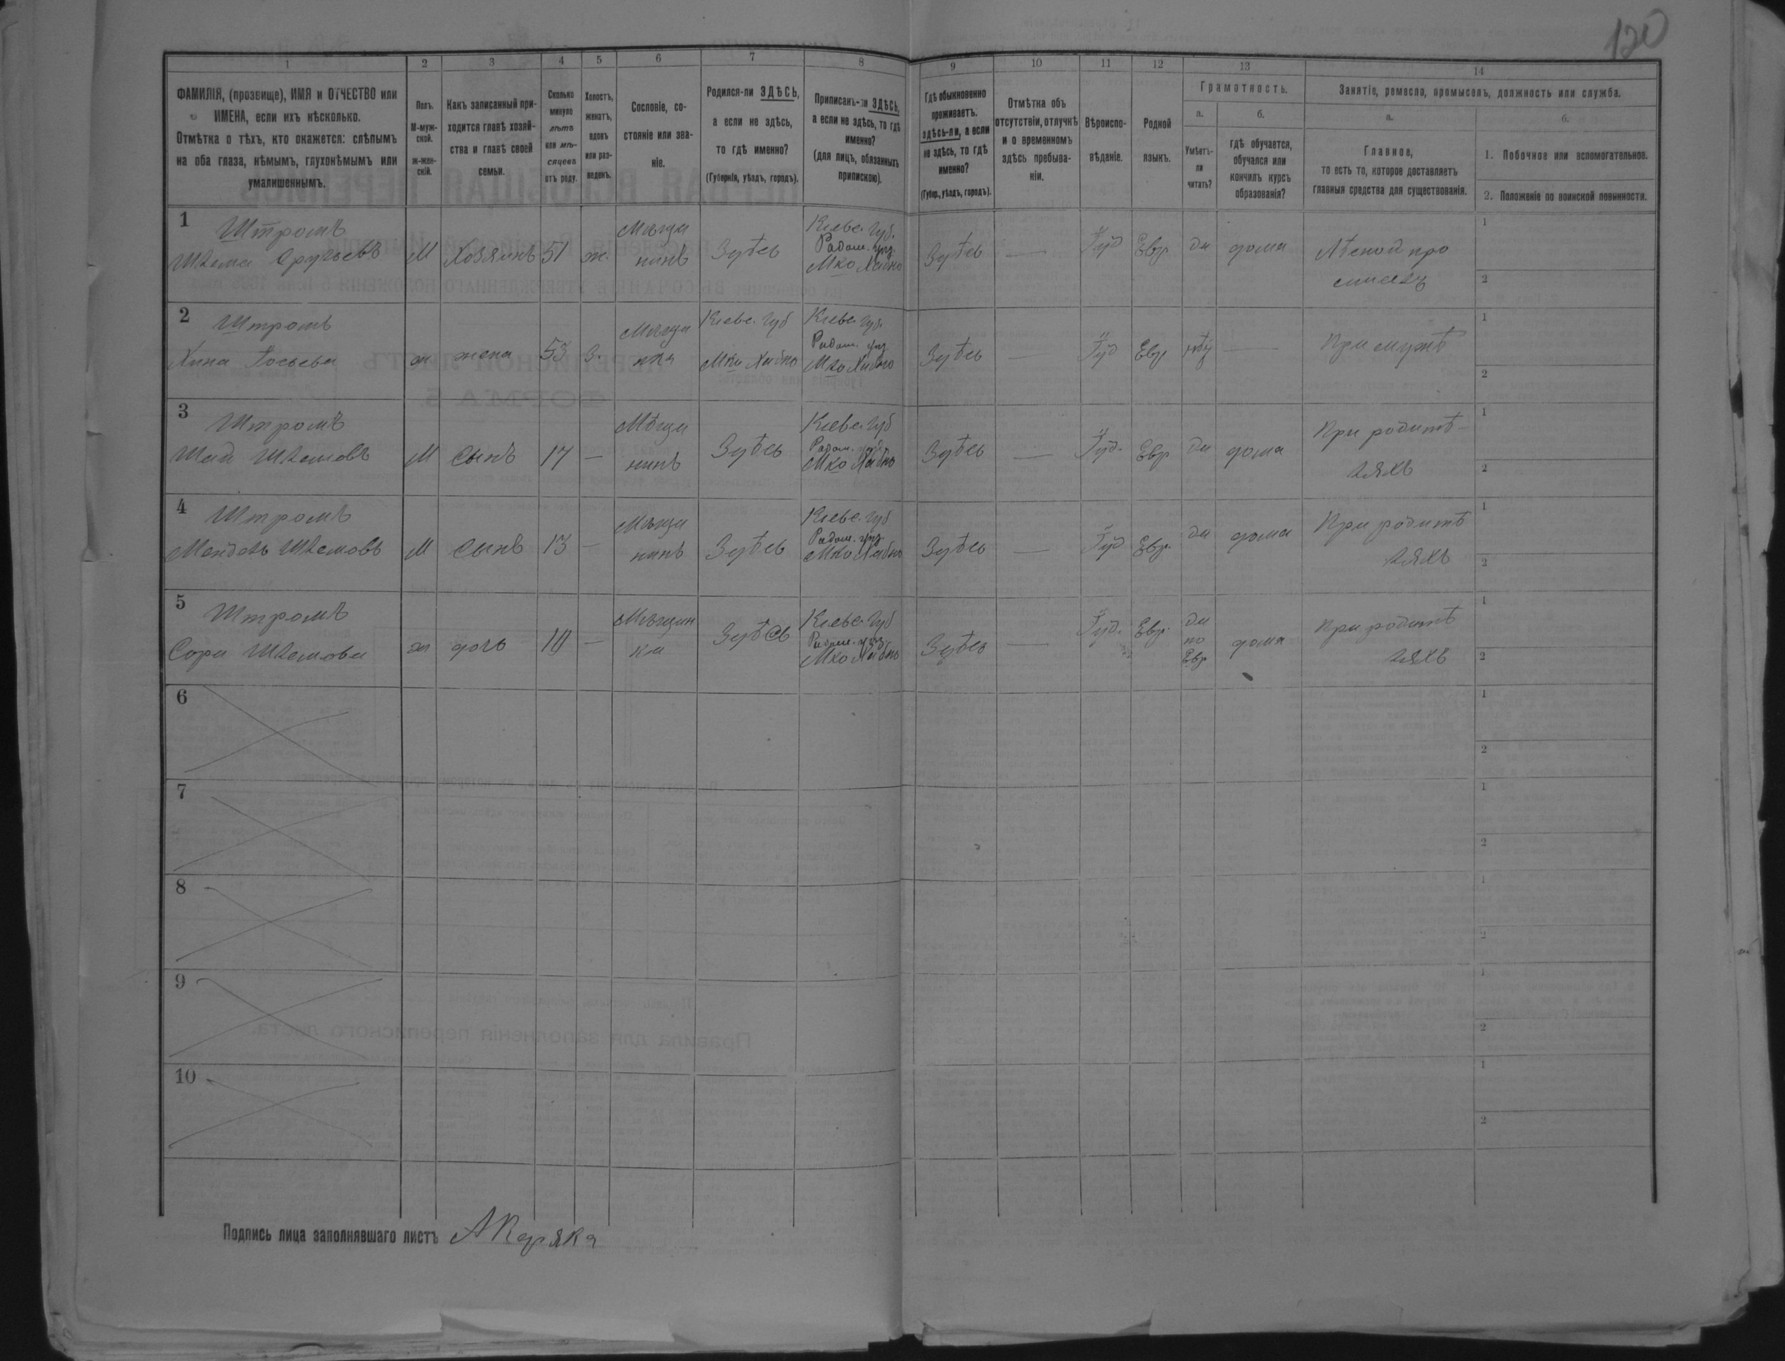 120
1 2 3 4 5 6 7 8 9 10 11 12 13 14
ФАМИЛІЯ, (прозвище), ИМЯ и ОТЧЕСТВО или
ИМЕНА, если ихъ нѣсколько.
Отмѣтка о тѣхъ, кто окажется: слѣпымъ
на оба глаза, нѣмымъ, глухонѣмымъ или
умалишеннымъ.
Полъ.
М-муж-
ской.
ж-жен-
скій.
Какъ записанный при-
ходится главѣ хозяй-
ства и главѣ своей
семьи.
Сколько
минуло
лѣтъ
или мѣ-
сяцевъ
отъ роду.
Холостъ,
женатъ,
вдовъ
или раз-
веденъ.
Сословіе, со-
стояніе или зва-
ніе.
Родился-ли ЗДѢСЬ,
а если не здѣсь,
то гдѣ именно?
(Губернія, уѣздъ, городъ).
Приписанъ-ли ЗДѢСЬ,
а если не здѣсь, то гдѣ
именно?
(для лицъ, обязанныхъ
припискою).
Гдѣ обыкновенно
проживаетъ:
здѣсь-ли, а если
не здѣсь, то гдѣ
именно?
(Губер., уѣздъ, городъ).
Отмѣтка объ
отсутствіи, отлучкѣ
и о временномъ
здѣсь пребыва-
ніи.
Вѣроиспо-
вѣданіе.
Родной
языкъ.
Грамотность.
а.
Умѣетъ-
ли
читать?
б.
Гдѣ обучается,
обучался или
кончилъ курсъ
образованія?
Занятіе, ремесло, промыселъ, должность или служба.
а.
Главное,
то есть то, которое доставляетъ
главныя средства для существованія.
б.
1. Побочное или вспомогательное.
2. Положеніе по воинской повинности.
1
Штромъ
М Хозяинъ 51 ж. Мѣща
нинъ Здѣсь Кіевс. Губ.
Радом. уѣз.
Мко Хабно Здѣсь — Іуд Евр да дома
1
2
2
Штромъ
Хана Іосьева ж жена 53 З. Мѣща
нка Кіевс. Губ
Мко Хабно Кіевс. Губ.
Радом. уѣз.
Мко Хабно Здѣсь — Іуд Евр — При мужѣ
1
2
3
Штромъ
М Сынъ 17 — Мѣща
нинъ Здѣсь Кіевс. Губ
Радом. уѣз.
Мко Хабно Здѣсь — Іуд. Евр да дома При родитѣ-
ляхъ
1
2
4
Штромъ
Мендель Шлемовъ М Сынъ 13 — Мѣща
нинъ Здѣсь Кіевс. Губ
Радом. уѣз.
Мко Хабно Здѣсь — Іуд Евр. да дома При родитѣ
ляхъ
1
2
5
Штромъ
Сора Шлемова ж дочь 10 — Мѣщан
ка Здѣсь Кіевс. Губ
Радом. уѣз.
Мко Хабно Здѣсь — Іуд. Евр. да
по
Евр дома При родитѣ
ляхъ
1
2
6
1
2
7
1
2
8
1
2
9
1
2
10
1
2
Подпись лица заполнявшаго листъ